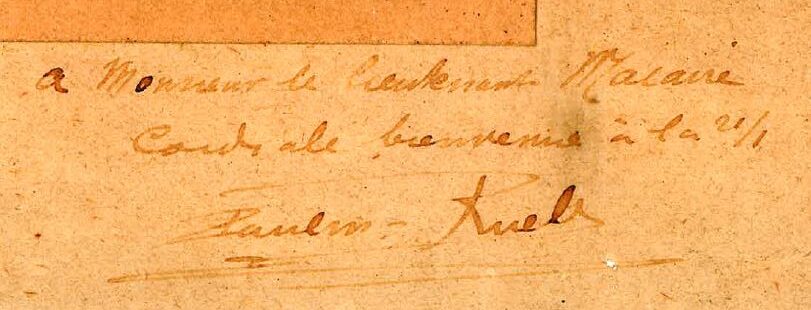 a Monsieur le lieutenant Macaire
Cordiale bienvenue à la 21/1
Paulin - Ruelle